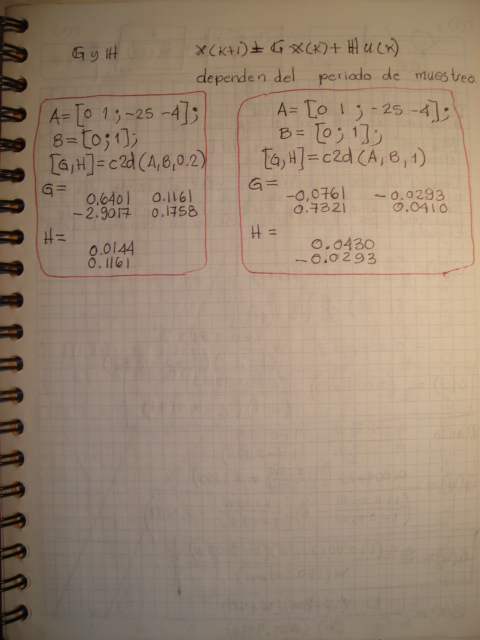 G y H x(k+1) = G x(k) + H u(k)
dependen del periodo de muestreo
A = [0 1 ; -25 -4];
B = [0; 1];
[G,H] = c2d (A,B,0.2)
G =
0,6401 0.1161
-2.9017 0.1758
H =
0.0144
0.1161
A = [0 1 ; -25 -4];
B = [0; 1];
[G,H] = c2d (A, B, 1)
G =
-0,0761 -0.0293
0.7321 0.0410
H =
0.0430
-0.0293